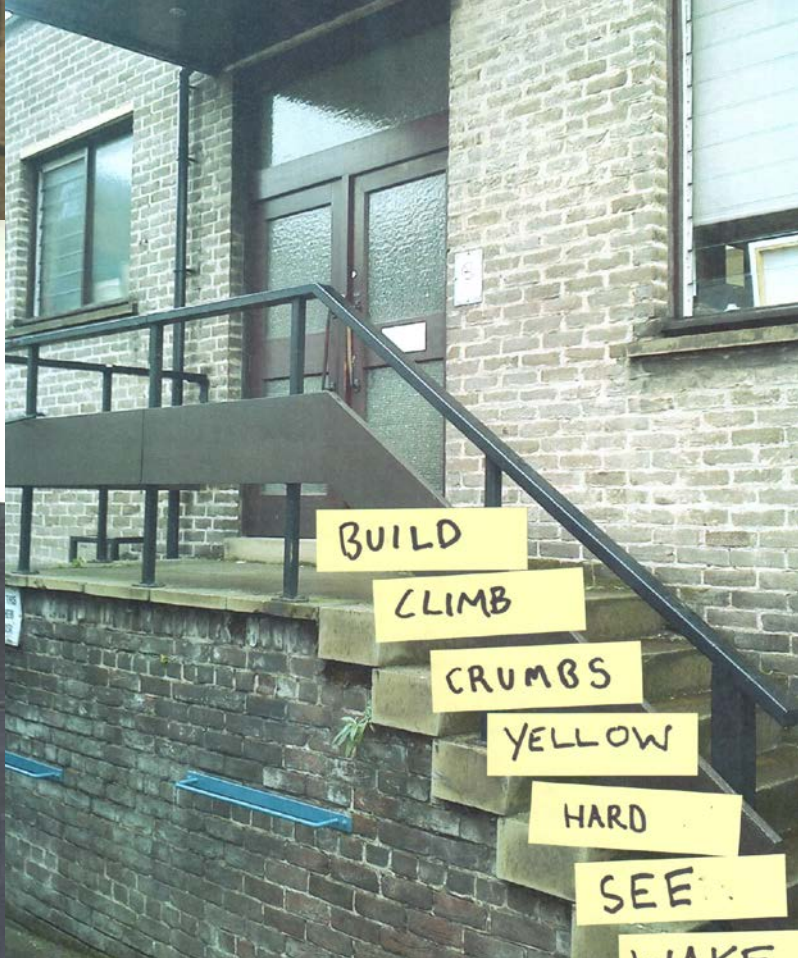 BUILD
CLIMB
CRUMBS
YELLOW
HARD
SEE
WAKE